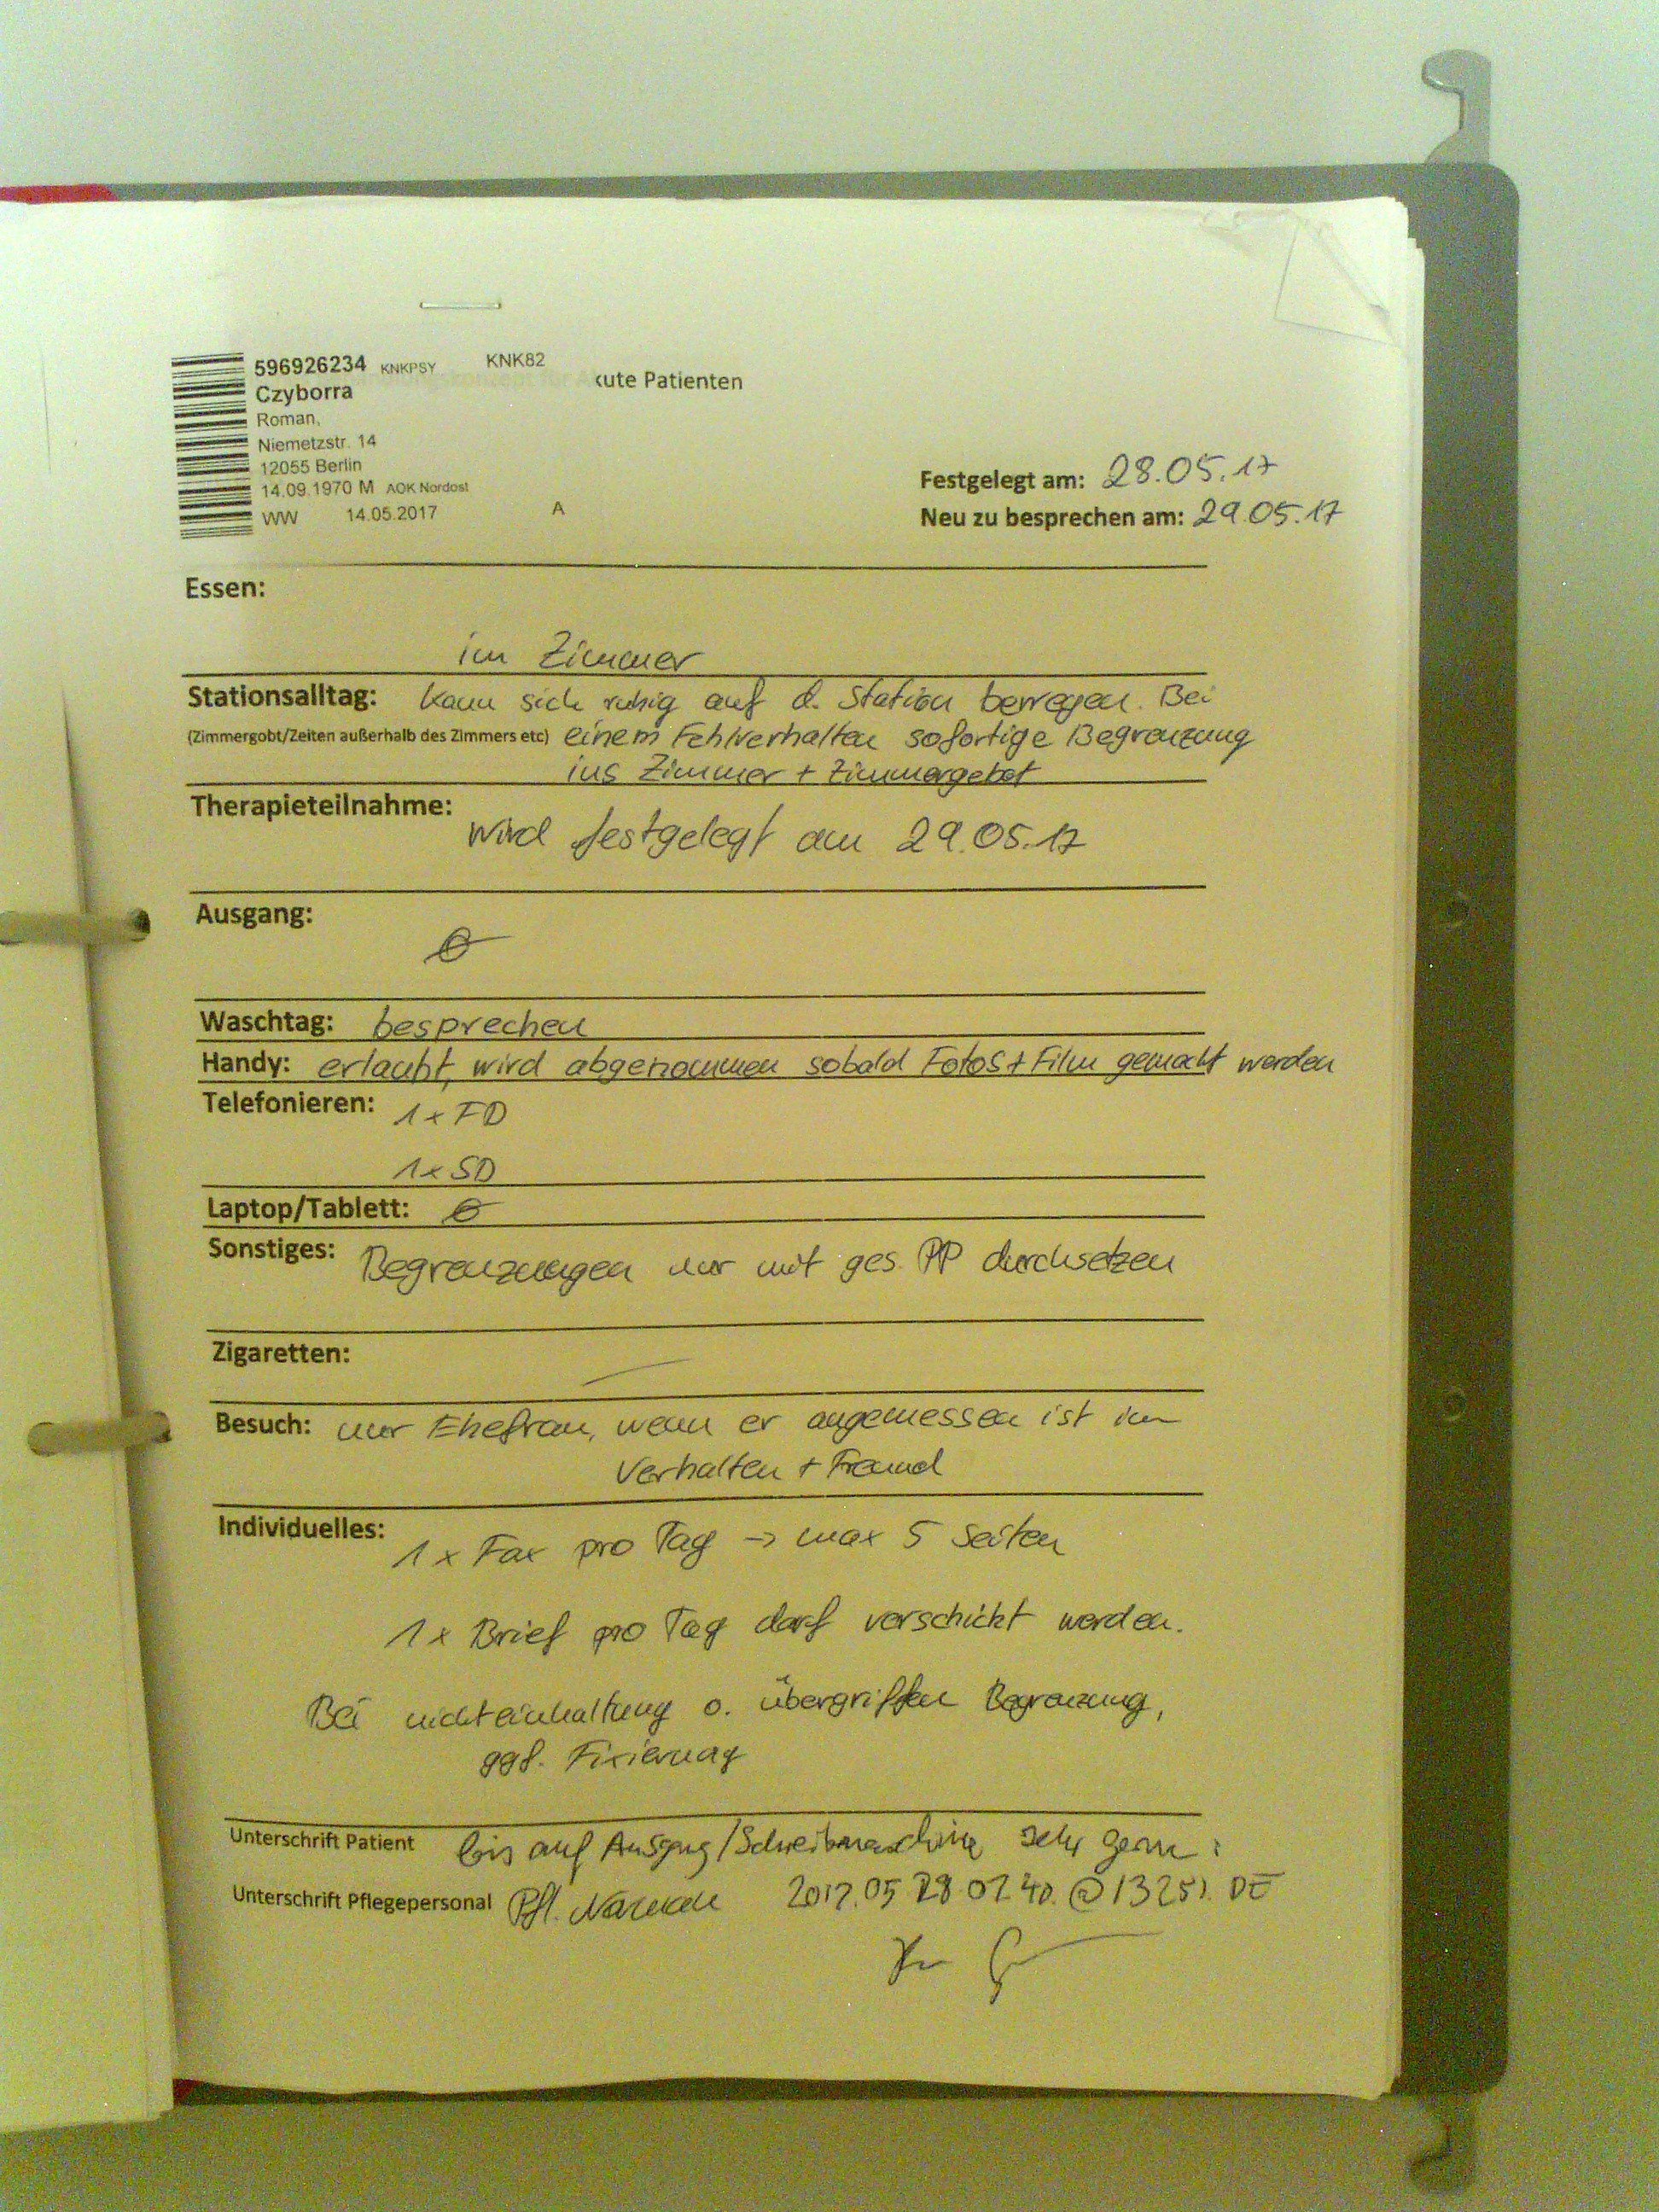 596926234 KNKPSY KNK82
Czyborra
kute Patienten
Roman,
Niemetzstr. 14
12055 Berlin
14.09.1970 M AOK Nordost
WW 14.05.2017 A
Festgelegt am: 28.05.17
Neu zu besprechen am: 29.05.17
Essen:
im Zimmer
Stationsalltag: kann sich ruhig auf d. Station bewegen. Bei
(Zimmergobt/Zeiten außerhalb des Zimmers etc) einem Fehlverhalten sofortige Begrenzung
ins Zimmer + Zimmergebot
Therapieteilnahme:
wird festgelegt am 29.05.17
Ausgang:
Ø
Waschtag: besprechen
Handy: erlaubt, wird abgenommen sobald Fotos + Film gemacht werden
Telefonieren: 1x FD
1x SD
Laptop/Tablett: Ø
Sonstiges: Begrenzungen nur mit ges. PP durchsetzen
Zigaretten: —
Besuch: nur Ehefrau, wenn er angemessen ist im
Verhalten + Freund
Individuelles: 1x Fax pro Tag → max 5 Seiten
1x Brief pro Tag darf verschickt werden.
Bei nichteinhaltung o. übergriffen Begrenzung,
ggf. Fixierung
Unterschrift Patient bis auf Ausgang/Schreibmaschine sehr gerne :
Unterschrift Pflegepersonal Pfl. 2017.05 28
DE